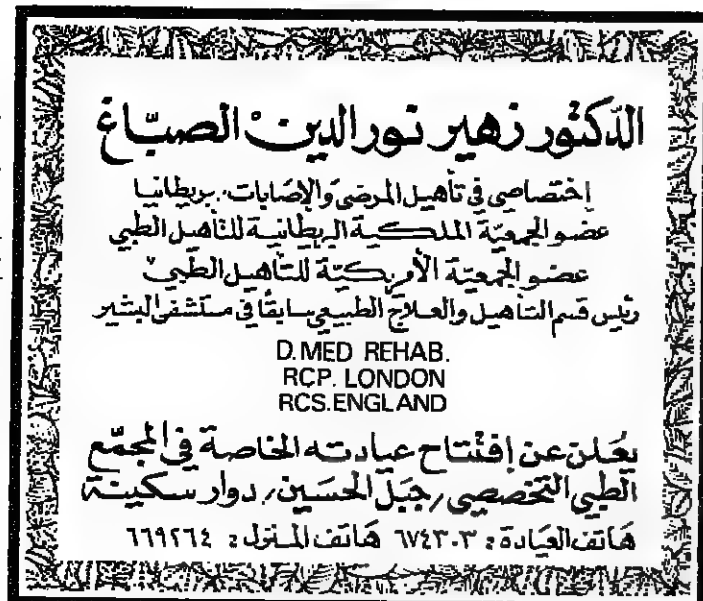 الدكتور زهير نور الدين الصباغ
إختصاصي في تأهيل المرضى والإصابات. بريطانيا
عضو الجمعية الملكية البريطانية للتأهيل الطبي
عضو الجمعية الأمريكية للتأهيل الطبي
رئيس قسم التأهيل والعلاج الطبيعي سابقًا في مستشفى البشير
D.MED REHAB.
RCP. LONDON
RCS.ENGLAND
يعلن عن إفتتاح عيادته الخاصة في المجمّع
الطبي التخصصي / جبل الحسين / دوار سكينة
هاتف العيادة: ٦٧٤٣٠٣ هاتف المنزل: ٦٦٩٢٦٤